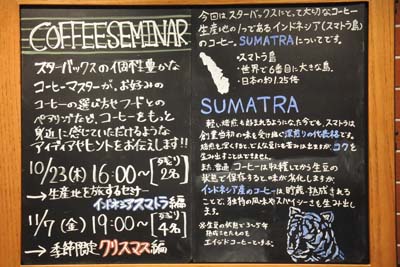 COFFEE SEMINAR
スターバックスの個性豊かな
コーヒーマスターが、お好みの
コーヒーの選び方やフードとの
ペアリングなど、コーヒーをもっと
身近に感じていただけるような
アイディアやヒントをお伝えします!!
10/23(木) 16:00~ [残り2名]
→生産地を旅するセミナー
インドネシアスマトラ編
11/7(金) 19:00~ [残り4名]
→季節限定クリスマス編
今回はスターバックスにとって大切なコーヒー
生産地の1つであるインドネシア(スマトラ島)
のコーヒー。SUMATRAについてです。
・スマトラ島
・世界で6番目に大きな島。
・日本の約1.25倍
SUMATRA
軽い焙煎も好まれるようになった今でも、スマトラは
創業当初の味を受け継ぐ深煎りの代表格です。
焙煎を深くしてどんな豆にも苦みは出ますが、コクを
生み出すことはできません。
また、普通コーヒーは収穫してから生豆の
状態で保存すると味が劣化しますが、
インドネシア産のコーヒーは貯蔵・熟成される
ことで、独特の風味やスパイシーさを生み出し
ます。
※生豆の状態で3~5年
熟成させたものを
エイジドコーヒーと呼ぶ。